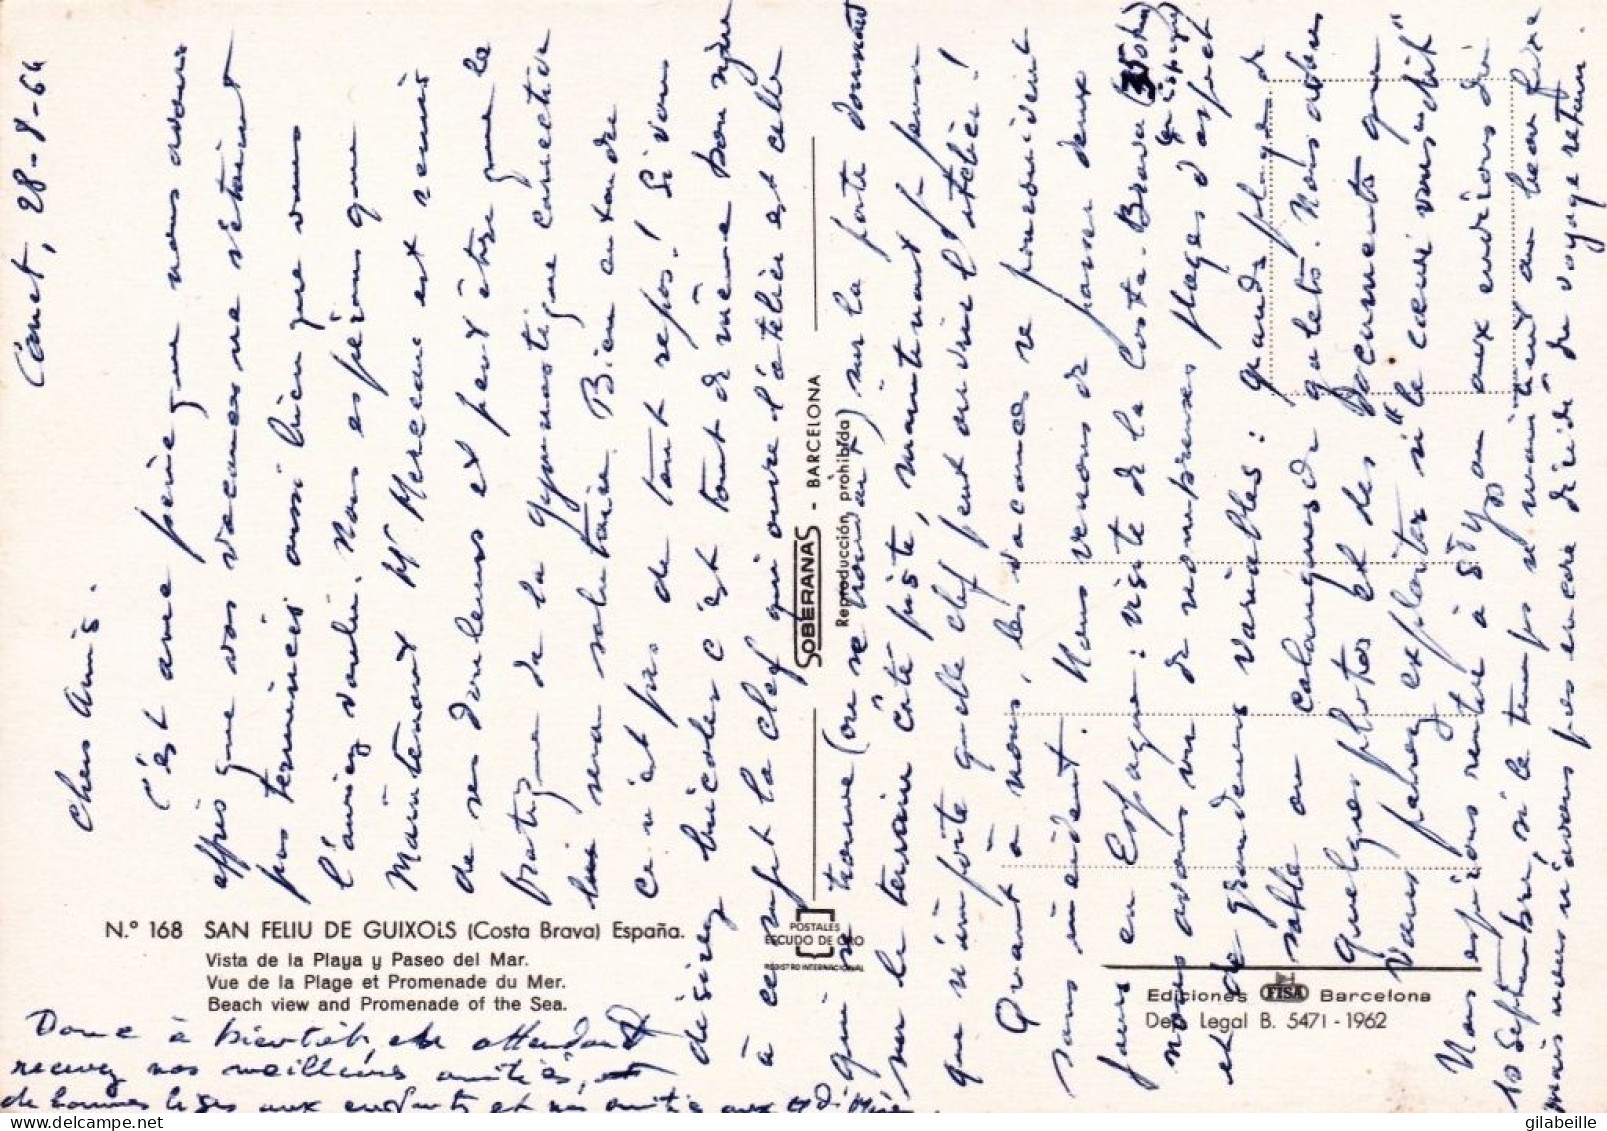 Canet, 28-8-64
Chers Amis.
C'est avec peine que nous avons
appris que vos vacances ne s'étaient
pas terminées aussi bien que vous
l'auriez voulu. Nous espérons que
maintenant Mr Merceau est remis
de ses douleurs et peut être que la
pratique de la gymnastique corrective
lui sera salutaire. Bien entendre
ce n'est pas de tout repos! Si vous
désirez bricoler c'est tout de même bon signe
à ce sujet la clef qui ouvre l'atelier est celle
qui se trouve (ou se trouvait) sur la porte donnant
sur le terrain côté piste, maintenant je pense
que n'importe quelle clef peut ouvrir l'atelier!
Quant à nous, les vacances se poursuivent
sans incident. Nous venons de passer deux
jours en Espagne: visite de la Costa-Brava (350 km en Espagne)
nous avons vu de nombreuses plages d'aspect
et de grandeurs variables: grande plage de
sable ou calanques de galets. Nous avons
quelques photos et des documents que
vous pourrez exploiter si "le cœur vous en dit"
Nous espérons rentrer à St Yzan aux environs du
10 Septembre, si le temps se maintient au beau fixe
mais nous n'avons pas encore décidé du voyage retour.
Donc à bientôt, en attendant
recevez nos meilleures amitiés,
de bonnes bises aux enfants et nos amitiés aux
N.º 168 SAN FELIU DE GUIXOLS (Costa Brava) España.
Vista de la Playa y Paseo del Mar.
Vue de la Plage et Promenade du Mer.
Beach view and Promenade of the Sea.
SOBERANAS - BARCELONA
Reproducción prohibida
POSTALES
ESCUDO DE ORO
REGISTRO INTERNACIONAL
Ediciones FISA Barcelona
Dep. Legal B. 5471-1962
gilabeille